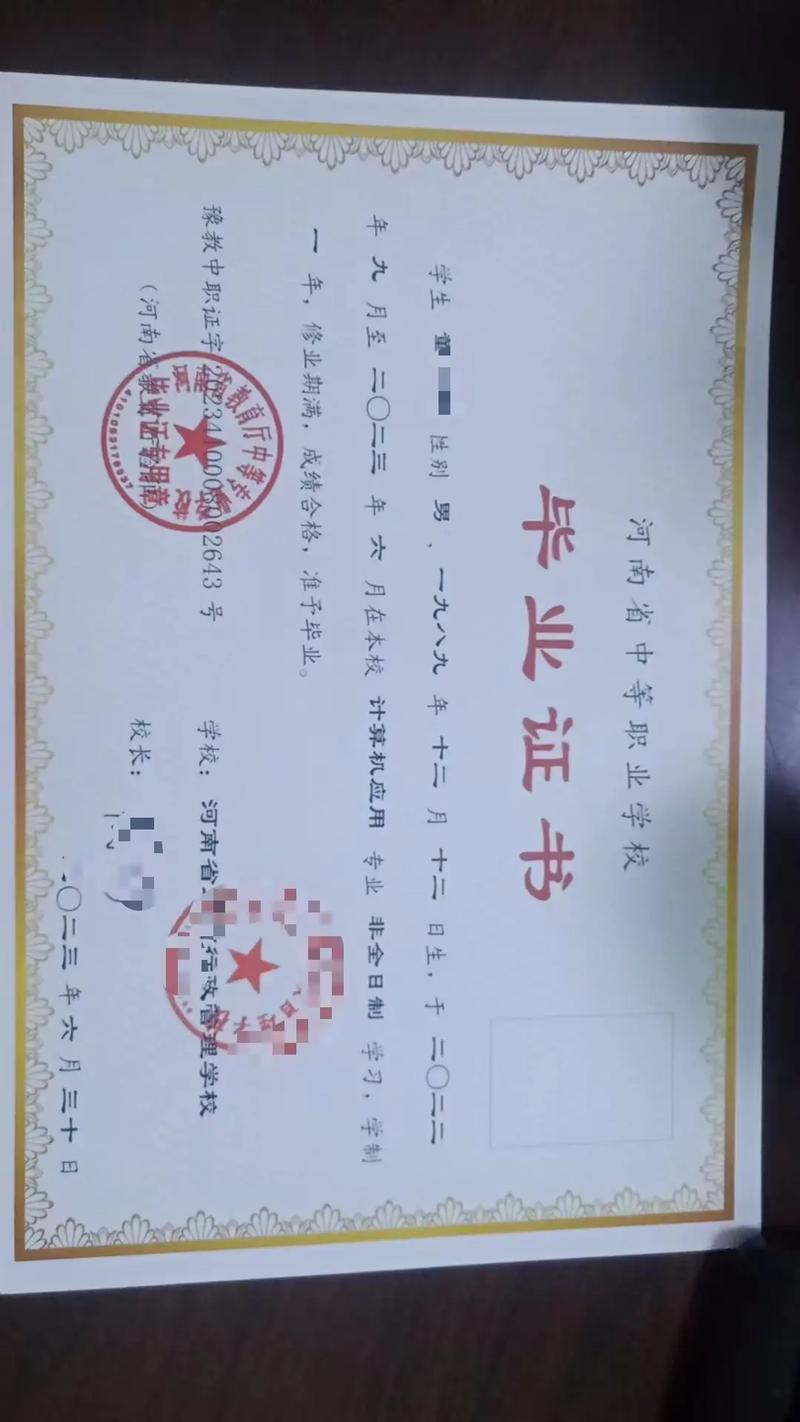 河南省中等职业学校
毕业证书
学生 董 性别 男 、一九八九 年 十二 月 十二 日生，于 二〇二二
年 九 月至 二〇二三 年 六 月在本校 计算机应用 专业 非全日制 学习，学制
一 年，修业期满，成绩合格，准予毕业。
豫教中职证字 号
学校：河南省 行政管理学校
（河南省教
毕业证专用章
4101065176537
校长：
〇二三 年 六 月 三十 日